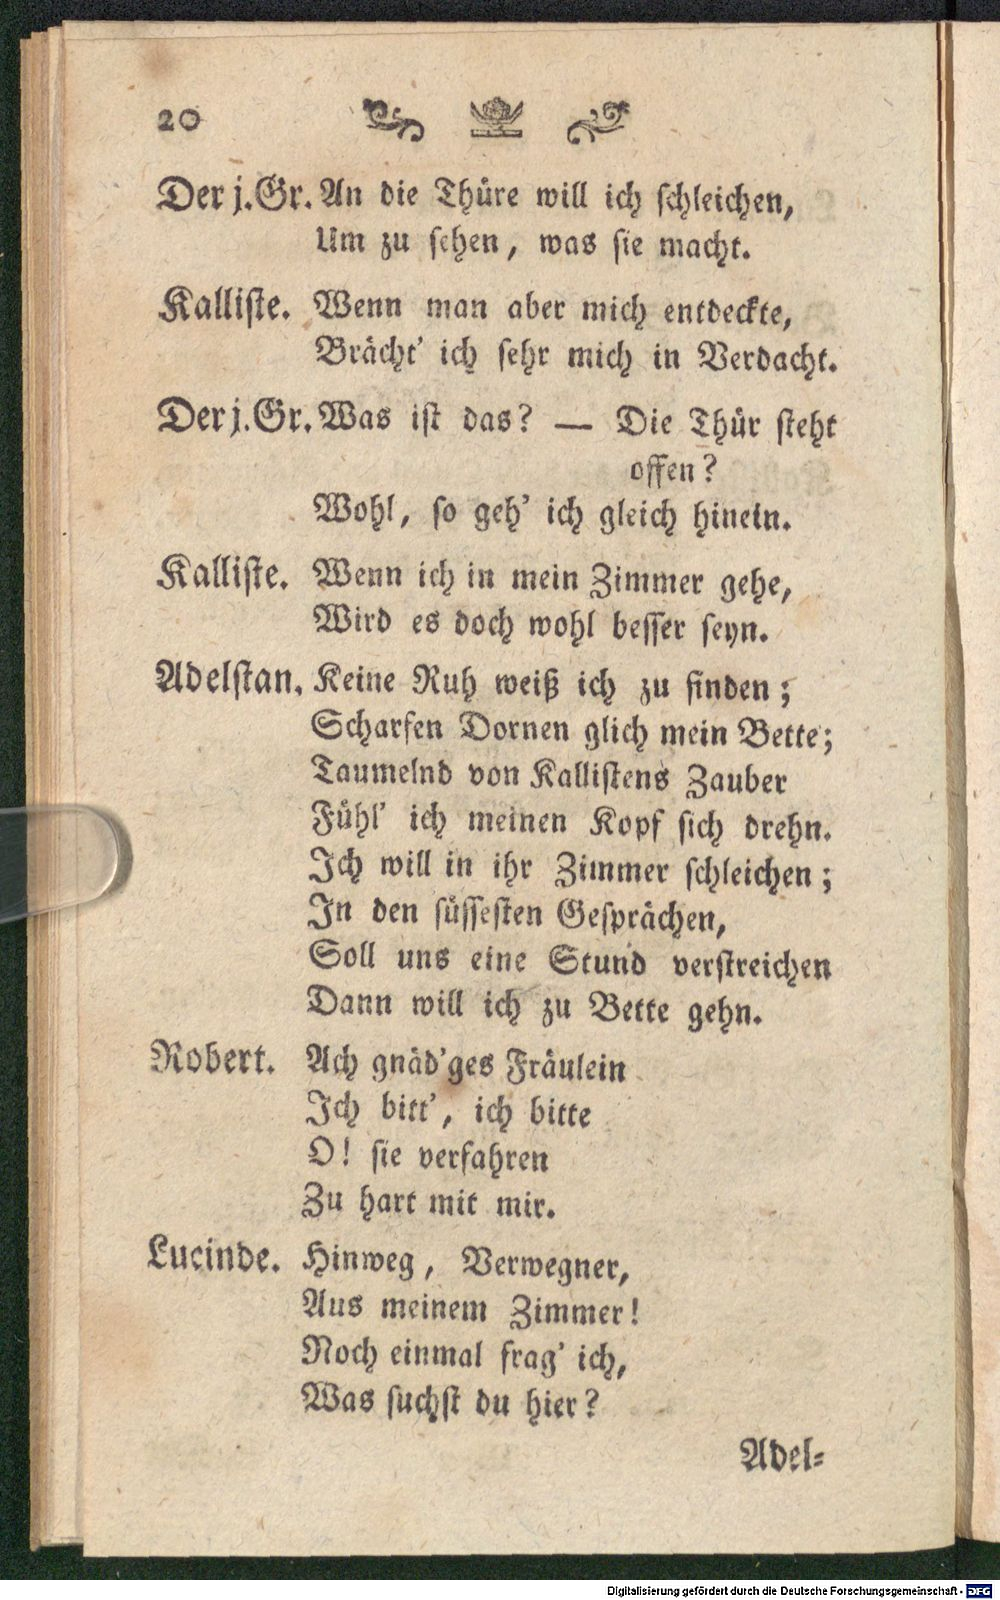 20
Der j. Gr. An die Thüre will ich schleichen,
Um zu sehen, was sie macht.
Kalliste. Wenn man aber mich entdeckte,
Brächt' ich sehr mich in Verdacht.
Der j. Gr. Was ist das? — Die Thür steht
offen?
Wohl, so geh' ich gleich hinein.
Kalliste. Wenn ich in mein Zimmer gehe,
Wird es doch wohl besser seyn.
Adelstan. Keine Ruh weiß ich zu finden;
Scharfen Dornen glich mein Bette;
Taumelnd von Kallistens Zauber
Fühl' ich meinen Kopf sich drehn.
Ich will in ihr Zimmer schleichen;
In den süssesten Gesprächen,
Soll uns eine Stund verstreichen
Dann will ich zu Bette gehn.
Robert. Ach gnäd'ges Fräulein
Ich bitt', ich bitte
O! sie verfahren
Zu hart mit mir.
Lucinde. Hinweg, Verwegner,
Aus meinem Zimmer!
Noch einmal frag' ich,
Was suchst du hier?
Adel-
Digitalisierung gefördert durch die Deutsche Forschungsgemeinschaft - DFG